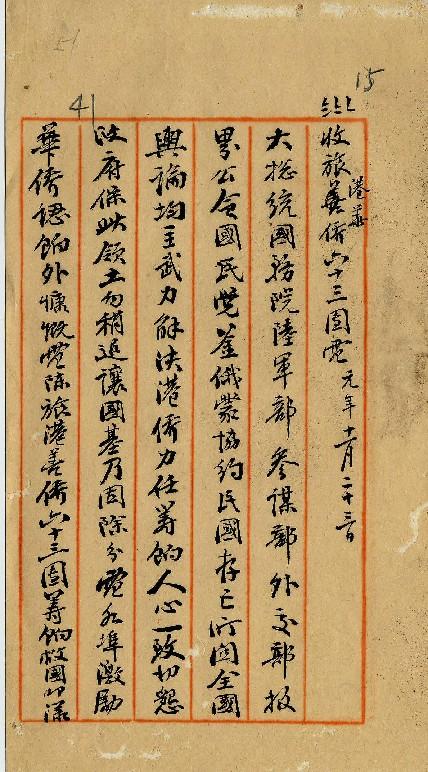 15
51
41
收旅港華僑六十三團電 元年十一月二十三日
大總統國務院陸軍部參謀部外交部報
界公會國民黨鉴俄蒙協約民國存亡所関全國
輿論均主武力解决港僑力任籌餉人心一致切懇
政府保此領土勿稍退讓國基乃固除分電各埠激勵
華僑認餉外慷慨電陳旅港華僑六十三團籌餉救國叩漾